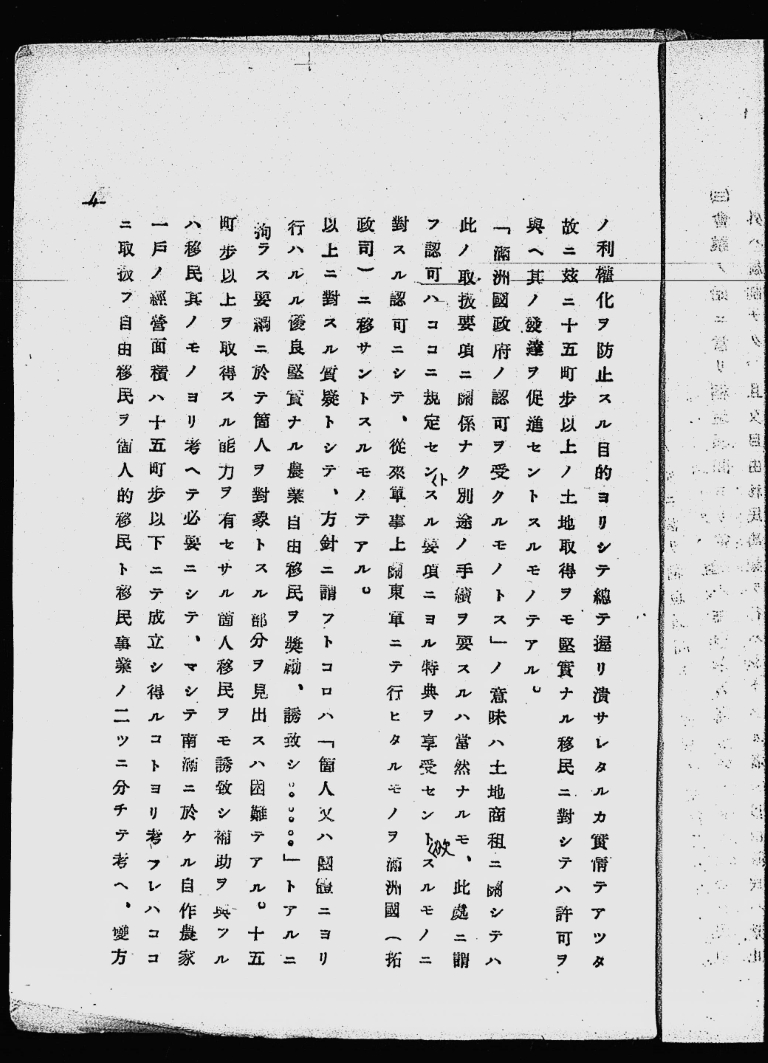 ノ利權化ヲ防止スル目的ヨリシテ總テ握リ潰サレタルカ實情テアツタ
故ニ茲ニ十五町步以上ノ土地取得ヲモ堅實ナル移民ニ對シテハ許可ヲ
與ヘ其ノ發達ヲ促進セントスルモノテアル。
「滿洲國政府ノ認可ヲ受クルモノトス」ノ意味ハ土地商租ニ關シテハ
此ノ取扱要項ニ關係ナク別途ノ手續ヲ要スルハ當然ナルモ、此處ニ謂
フ認可ハココニ規定セントスル要項ニヨル特典ヲ享受セント欲スルモノニ
對スル認可ニシテ、從來軍事上關東軍ニテ行ヒタルモノヲ滿洲國（拓
政司）ニ移サントスルモノテアル。
以上ニ對スル質疑トシテ、方針ニ謂フトコロハ「箇人又ハ團體ニヨリ
行ハルル優良堅實ナル農業自由移民ヲ獎勵、誘致シ。。。。。」トアルニ
拘ラス要綱ニ於テ箇人ヲ對象トスル部分ヲ見出スハ困難テアル。十五
町步以上ヲ取得スル能力ヲ有セサル箇人移民ヲモ誘致シ補助ヲ與フル
ハ移民其ノモノヨリ考ヘテ必要ニシテ、マシテ南滿ニ於ケル自作農家
一戶ノ經營面積ハ十五町步以下ニテ成立シ得ルコトヨリ考フレハココ
ニ取扱フ自由移民ヲ箇人的移民ト移民事業ノ二ツニ分チテ考ヘ、雙方
4